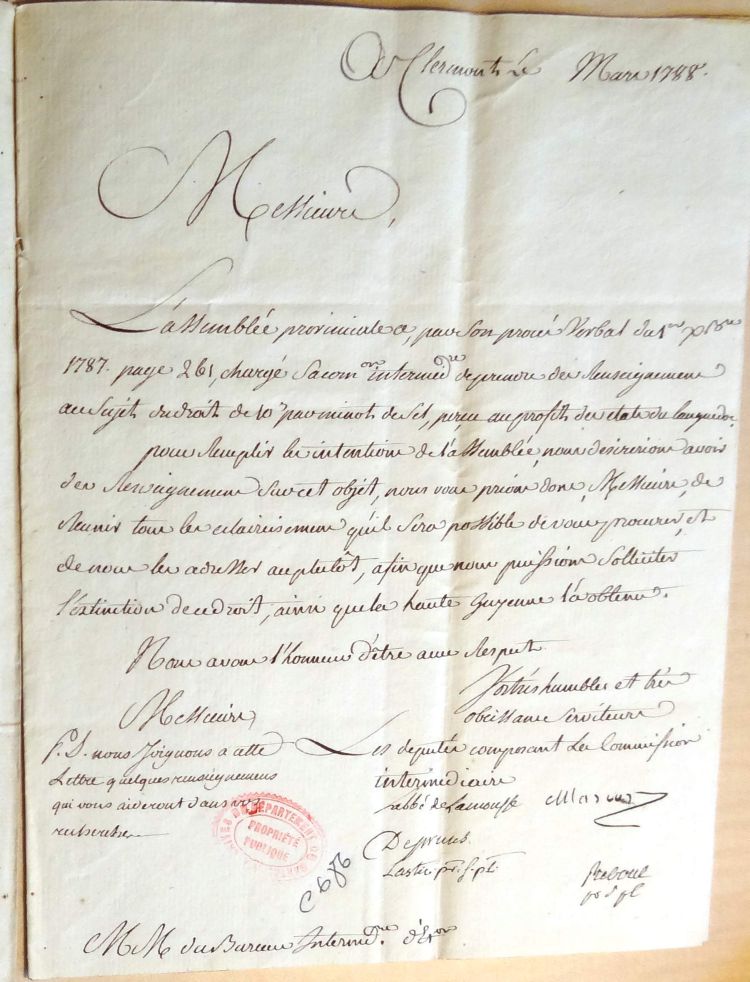 A Clermont le Mars 1788.
Messieurs,
L'assemblée provinciale a, par son procès Verbal du 1er Xbre
1787. page 261, chargé sa comon intermédre de prendre des Renseignements
au sujet du droit de 10s par minot de Sel, perçu au profit des états du Languedoc
pour Remplir les intentions de l'assemblée, nous désirerions avoir
des Renseignements sur cet objet, nous vous prions donc, Messieurs, de
Réunir tous les eclaircissements qu'il sera possible de vous procurer, et
de nous les adresser au plutôt, afin que nous puissions solliciter
l'extinction de ce droit, ainsi que la haute Guyenne l'a obtenu.
Nous avons l'honneur d'être avec Respect
Messieurs,
Vos très humbles et très
obéissans Serviteurs
Les députés composant la Commission
intermédiaire
P.S. nous Joignons a cette
Lettre quelques renseignemens
qui vous aideront dans vos
recherches
abbé de Lamousse
PROPRIÉTÉ
PUBLIQUE
C 686
Reboul
MM. du Bureau Intermédre d'